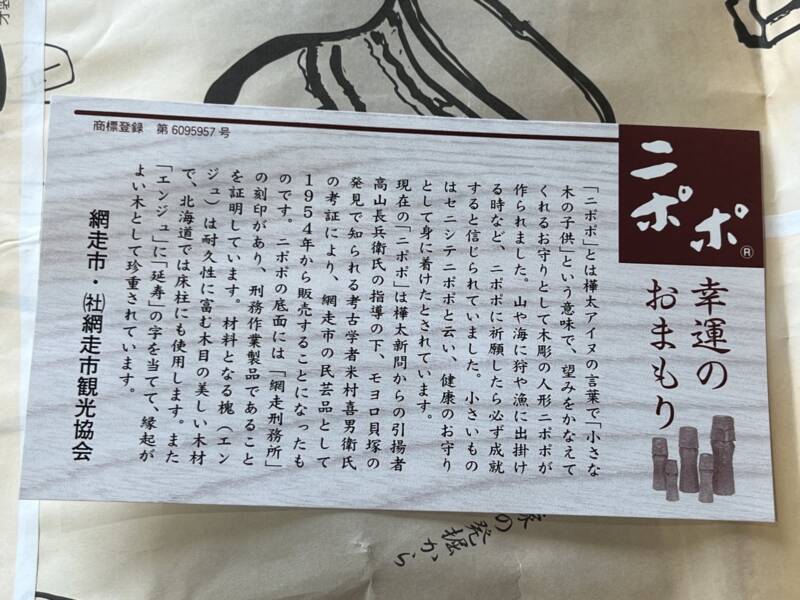 商標登録 第6095957号
ニポポ®
幸運の
おまもり
「ニポポ」とは樺太アイヌの言葉で「小さな
木の子供」という意味で、望みをかなえて
くれるお守りとして木彫の人形ニポポが
作られました。山や海に狩や漁に出掛け
る時など、ニポポに祈願したら必ず成就
すると信じられていました。小さいもの
はセニシテニポポと云い、健康のお守り
として身に着けたとされています。
現在の「ニポポ」は樺太新問からの引揚者
高山長兵衛氏の指導の下、モヨロ貝塚の
発見で知られる考古学者米村喜男衛氏
の考証により、網走市の民芸品として
1954年から販売することになったも
のです。ニポポの底面には「網走刑務所」
の刻印があり、刑務作業製品であること
を証明しています。材料となる槐（エン
ジュ）は耐久性に富む木目の美しい木材
で、北海道では床柱にも使用します。また
「エンジュ」に「延寿」の字を当てて、縁起が
よい木として珍重されています。
網走市・㈳網走市観光協会
の発掘から